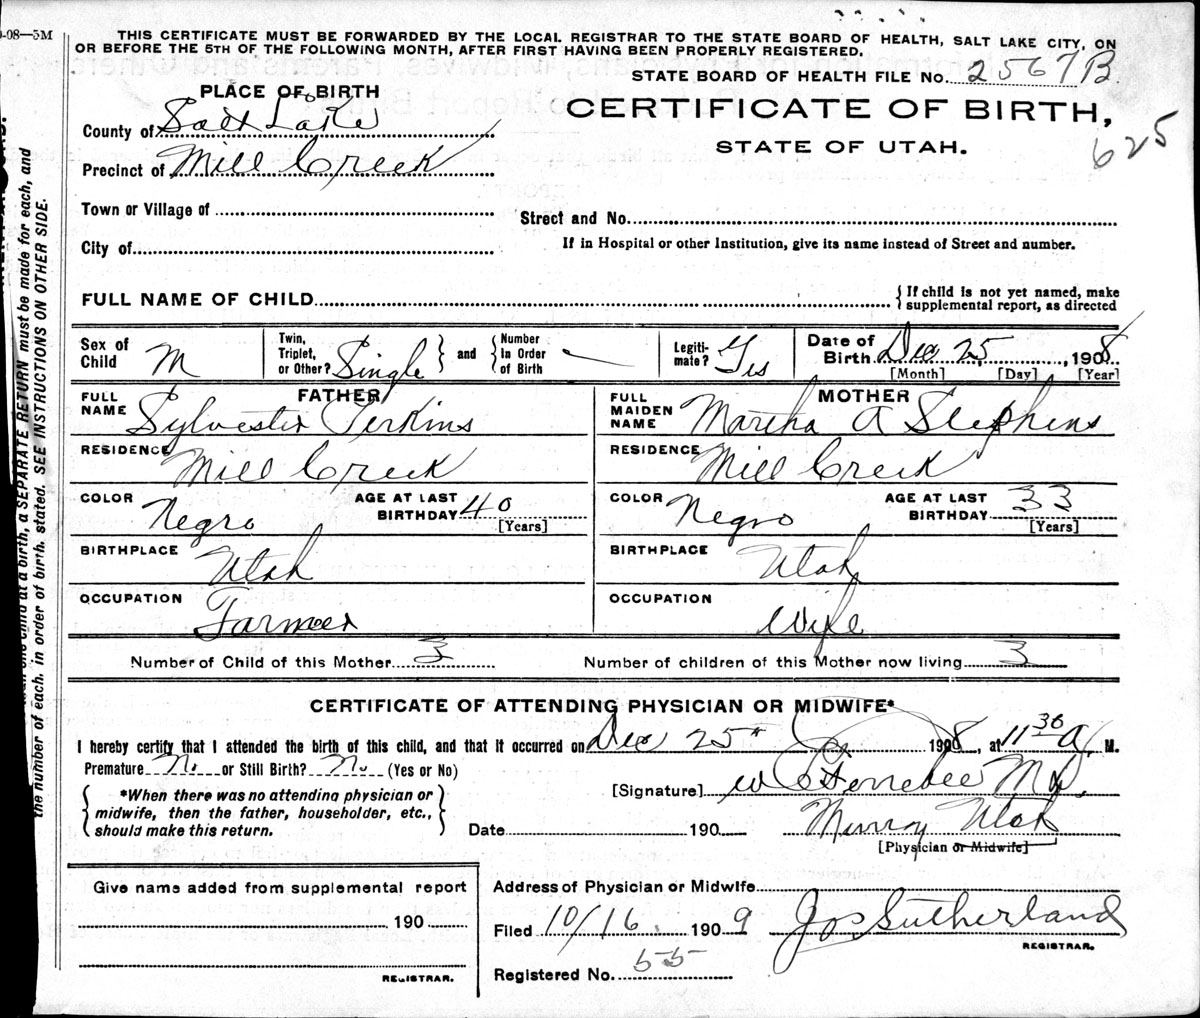 0-08—5M
THIS CERTIFICATE MUST BE FORWARDED BY THE LOCAL REGISTRAR TO THE STATE BOARD OF HEALTH, SALT LAKE CITY, ON
OR BEFORE THE 5TH OF THE FOLLOWING MONTH, AFTER FIRST HAVING BEEN PROPERLY REGISTERED.
STATE BOARD OF HEALTH FILE No. 2567B
PLACE OF BIRTH
CERTIFICATE OF BIRTH,
STATE OF UTAH.
625
County of Salt Lake
Precinct of Mill Creek
Town or Village of
Street and No.
City of
If in Hospital or other Institution, give its name instead of Street and number.
FULL NAME OF CHILD
If child is not yet named, make
supplemental report, as directed
Sex of Child M
Twin, Triplet, or Other? Single and Number In Order of Birth
Legitimate? Yes
Date of Birth Dec 25, 1908
[Month] [Day] [Year]
FATHER
FULL NAME Sylvester Perkins
RESIDENCE Mill Creek
COLOR Negro AGE AT LAST BIRTHDAY 40 [Years]
BIRTHPLACE Utah
OCCUPATION Farmer
MOTHER
FULL MAIDEN NAME Martha A Stephens
RESIDENCE Mill Creek
COLOR Negro AGE AT LAST BIRTHDAY 33 [Years]
BIRTHPLACE Utah
OCCUPATION Wife
Number of Child of this Mother 3 Number of children of this Mother now living 3
CERTIFICATE OF ATTENDING PHYSICIAN OR MIDWIFE*
I hereby certify that I attended the birth of this child, and that it occurred on Dec 25th 1908, at 11 30 A. M.
Premature No or Still Birth? No (Yes or No)
*When there was no attending physician or
midwife, then the father, householder, etc.,
should make this return.
[Signature] M D.
Date 190 Murray Utah
[Physician or Midwife]
Give name added from supplemental report
190
REGISTRAR.
Address of Physician or Midwife
Filed 10/16. 1909 Jos Sutherland
REGISTRAR.
Registered No. 55
one child at a birth, a SEPARATE RETURN must be made for each, and
the number of each, in order of birth, stated. SEE INSTRUCTIONS ON OTHER SIDE.